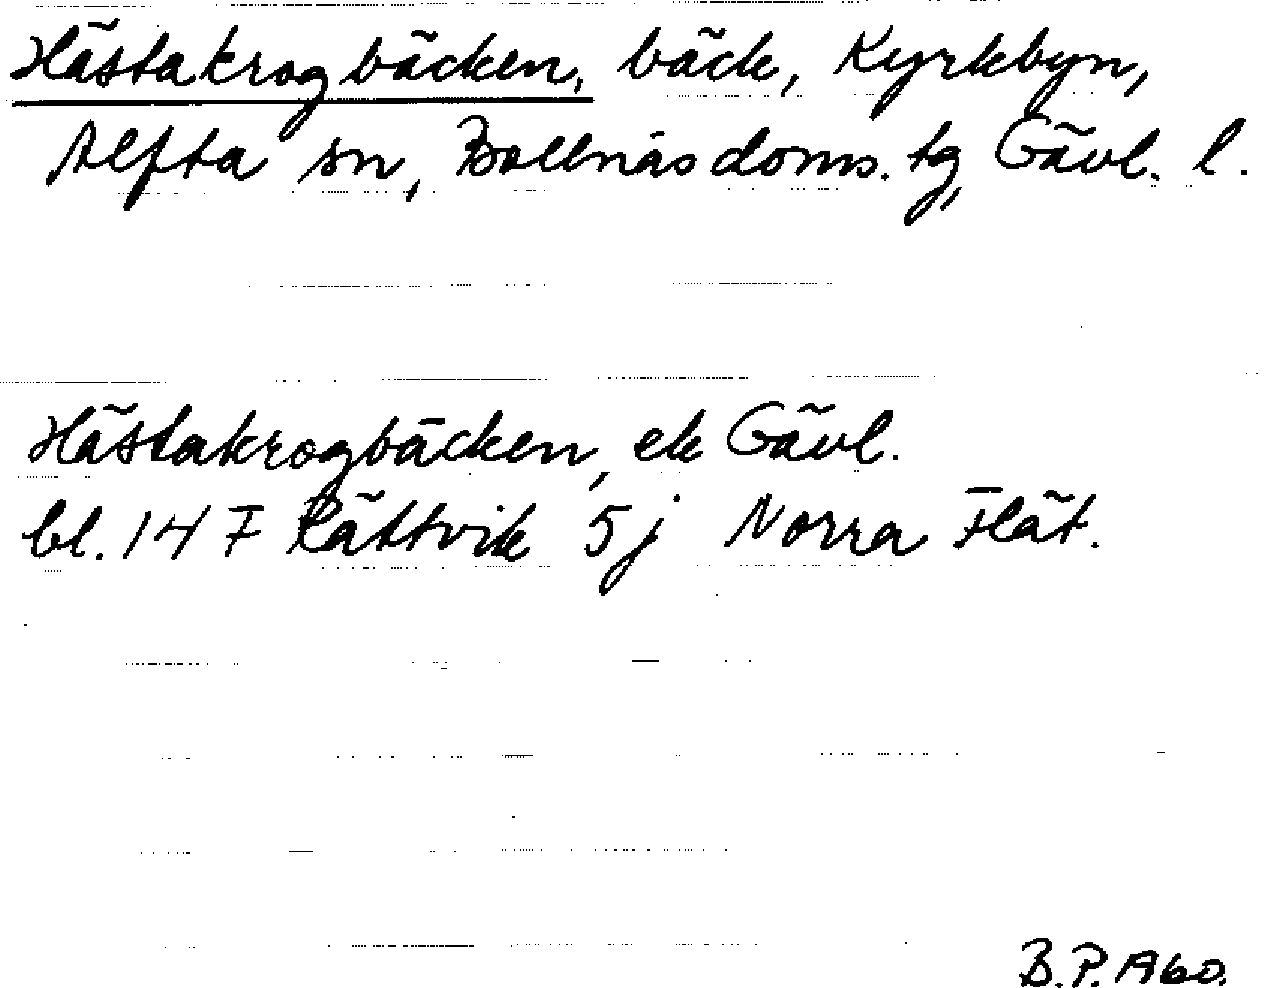 Hästakrogbäcken, bäck, Kyrkbyn,
Alfta sn, Bollnäs doms. tg, Gävl. l.
Hästakrogbäcken, ek Gävl.
bl. 147 Rättvik 5j Norra Flät.
B.P. 1960.